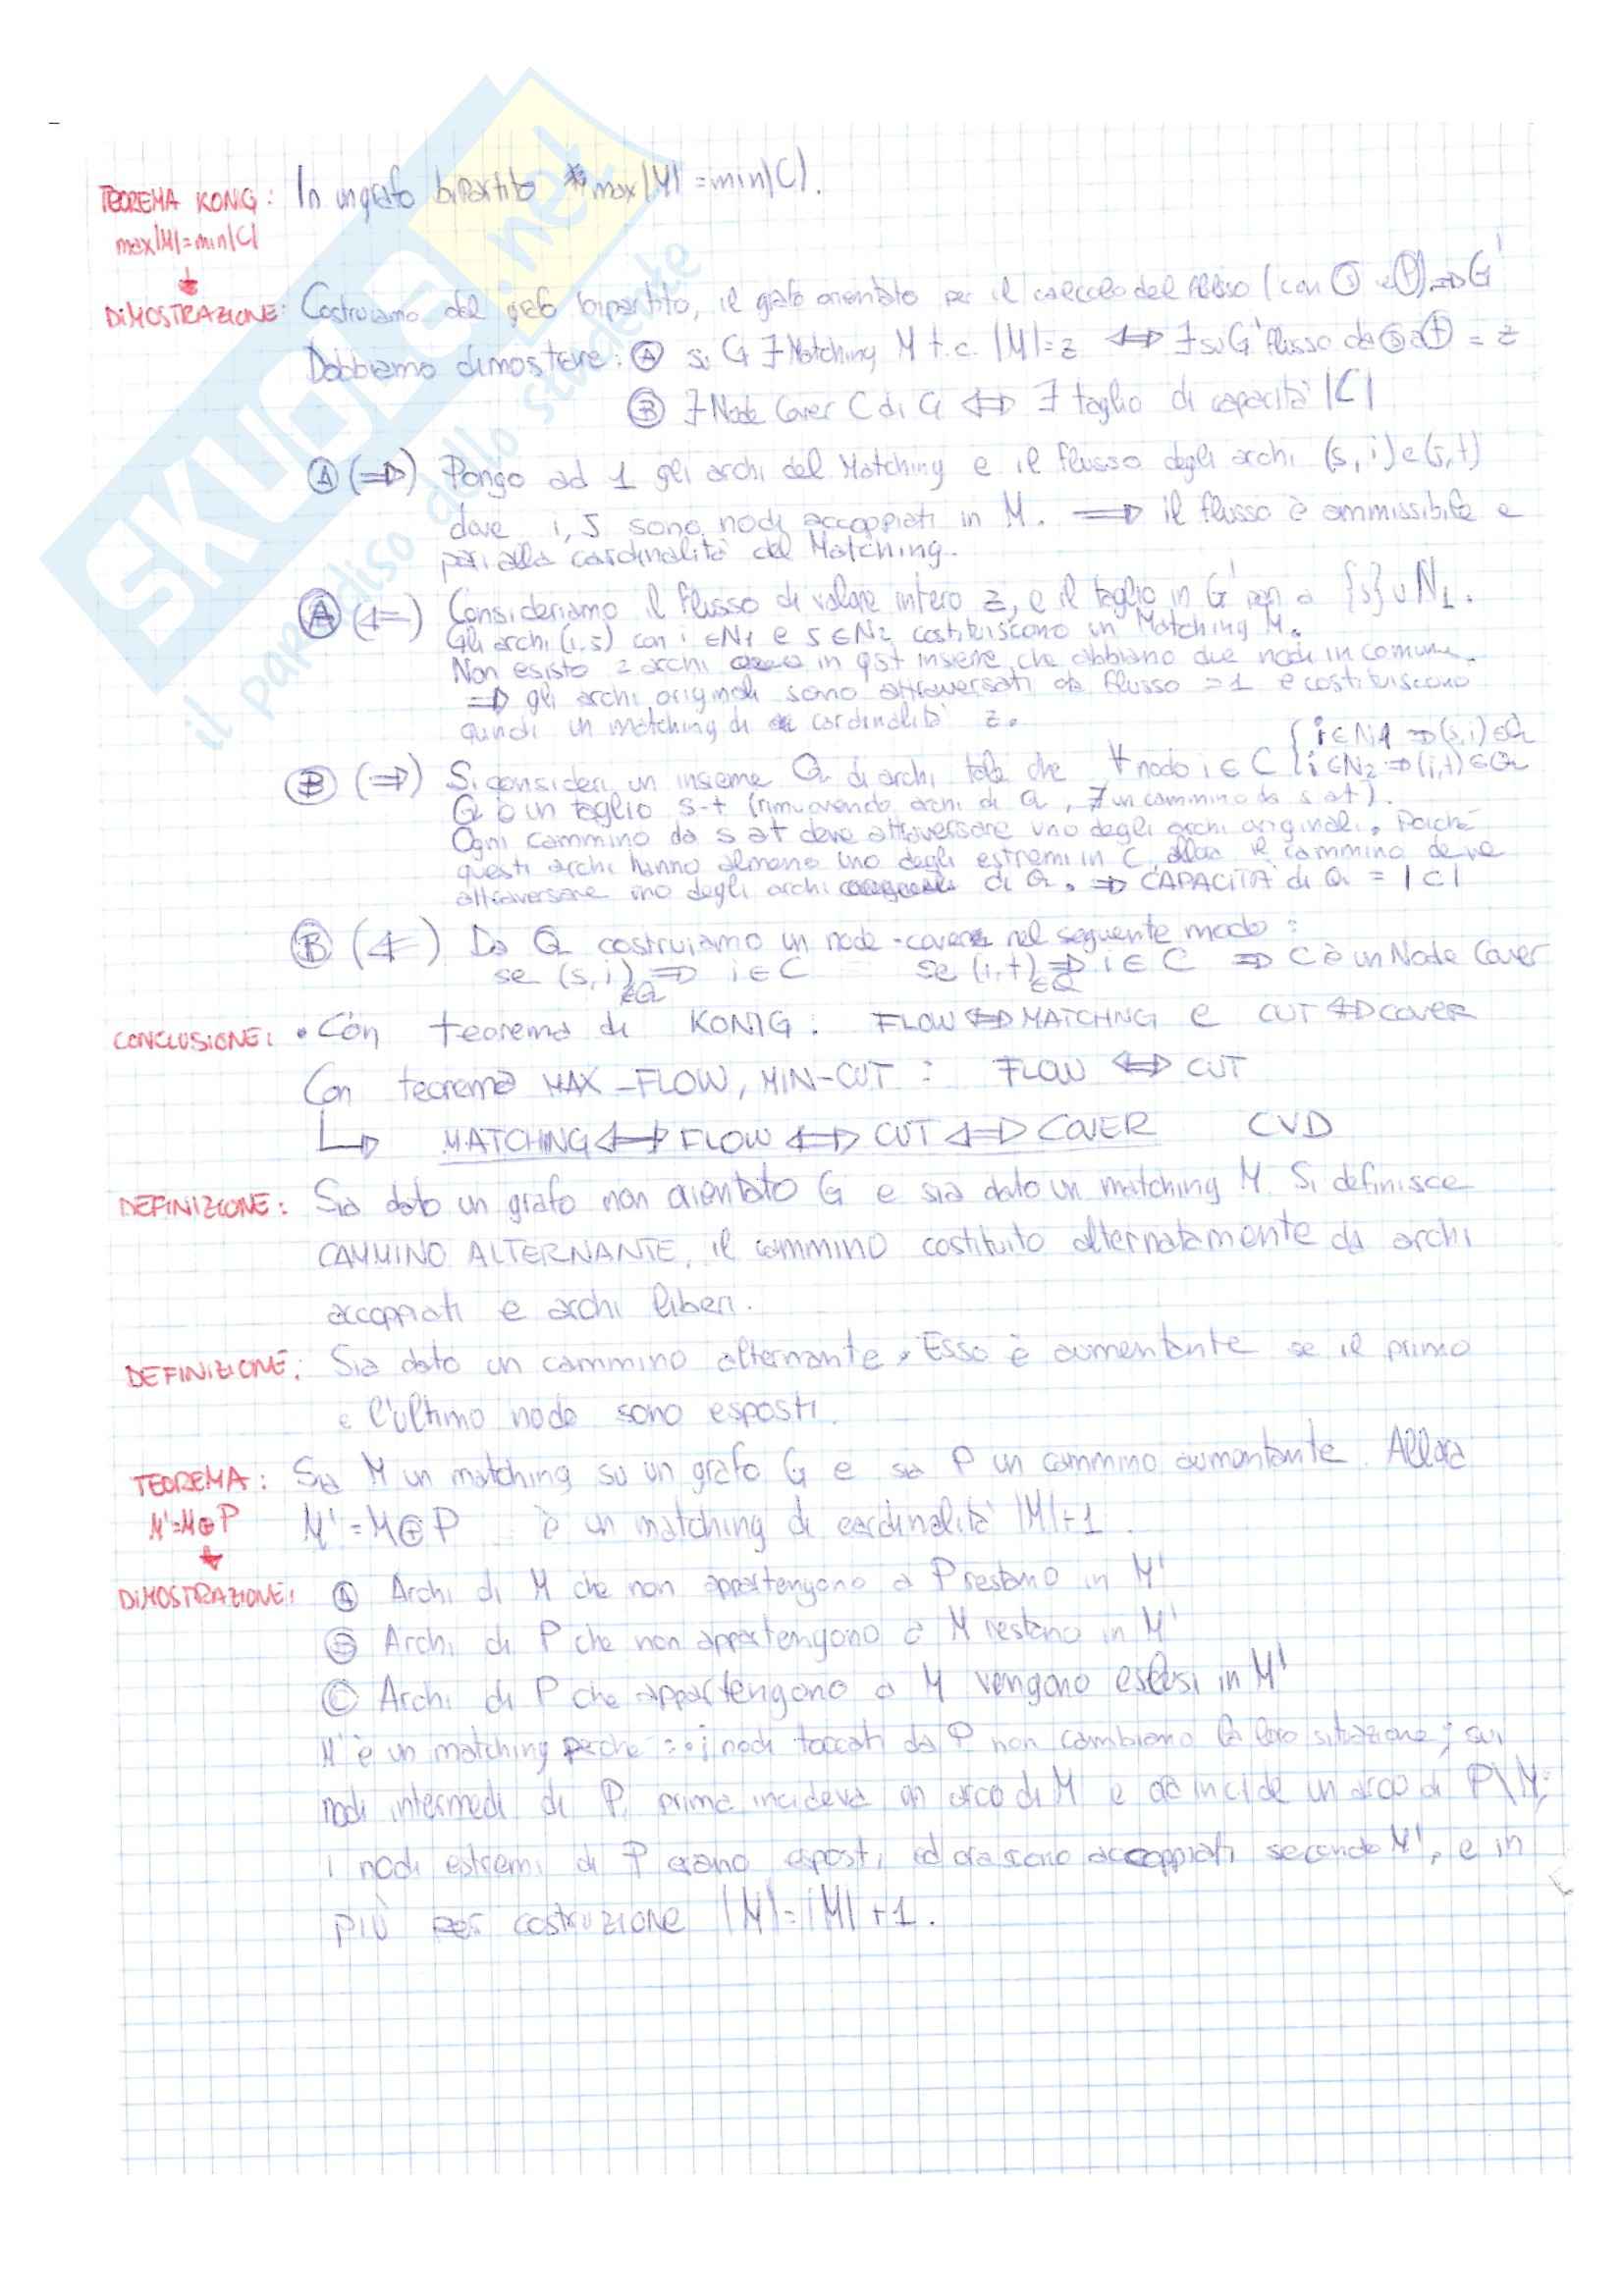 TEOREMA KONIG: In un grafo bipartito max|M|=min|C|.
max|M|=min|C|
DIMOSTRAZIONE: Costruiamo dal grafo bipartito, il grafo orientato per il calcolo del flusso (con s e t) ⇒ G'
Dobbiamo dimostrare: A su G ∃ Matching M t.c. |M|=z ⇔ ∃ su G' flusso da s a t = z
B ∃ Node Cover C di G ⇔ ∃ taglio di capacità |C|
A (⇒) Pongo ad 1 gli archi del Matching e il flusso degli archi (s,i) e (j,t)
dove i, J sono nodi accoppiati in M. ⇒ il flusso è ammissibile e
pari alla cardinalità del Matching.
A (⇐) Consideriamo il flusso di valore intero z, e il taglio in G' pari a {s}∪N1.
Gli archi (i,j) con i∈N1 e j∈N2 costituiscono un Matching M.
Non esisto 2 archi in qst insieme che abbiano due nodi in comune.
⇒ gli archi originali sono attraversati da flusso =1 e costituiscono
quindi un matching di cardinalità z.
B (⇒) Si consideri un insieme Q di archi tale che ∀ nodo i∈C { i∈N1 ⇒ (s,i)∈Q
i∈N2 ⇒ (i,t)∈Q
Q è un taglio s-t (rimuovendo archi di Q, ∄ un cammino da s a t).
Ogni cammino da s a t deve attraversare uno degli archi originali. Poiché
questi archi hanno almeno uno degli estremi in C, allora il cammino deve
attraversare uno degli archi di Q. ⇒ CAPACITÀ di Q = |C|
B (⇐) Da Q costruiamo un node-cover nel seguente modo:
se (s,i)∈Q ⇒ i∈C se (i,t)∈Q ⇒ i∈C ⇒ C è un Node Cover
CONCLUSIONE: • Con teorema di KONIG: FLOW ⇔ MATCHING e CUT ⇔ COVER
Con teorema MAX-FLOW, MIN-CUT: FLOW ⇔ CUT
↳ MATCHING ⇔ FLOW ⇔ CUT ⇔ COVER CVD
DEFINIZIONE: Sia dato un grafo non orientato G e sia dato un matching M. Si definisce
CAMMINO ALTERNANTE, il cammino costituito alternatamente da archi
accoppiati e archi liberi.
DEFINIZIONE: Sia dato un cammino alternante. Esso è aumentante se il primo
e l'ultimo nodo sono esposti.
TEOREMA: Sia M un matching su un grafo G e sia P un cammino aumentante. Allora
M'=M⊕P M'=M⊕P è un matching di cardinalità |M|+1.
DIMOSTRAZIONE: A Archi di M che non appartengono a P restano in M'
B Archi di P che non appartengono a M restano in M'
C Archi di P che appartengono a M vengono esclusi in M'
M' è un matching perché: i nodi toccati da P non cambiano la loro situazione; sui
nodi intermedi di P, prima incideva un arco di M e ora incide un arco di P\M;
i nodi estremi di P erano esposti, ed ora sono accoppiati secondo M', e in
più per costruzione |M'|=|M|+1.
SKUOLA.net
il paradiso dello studente